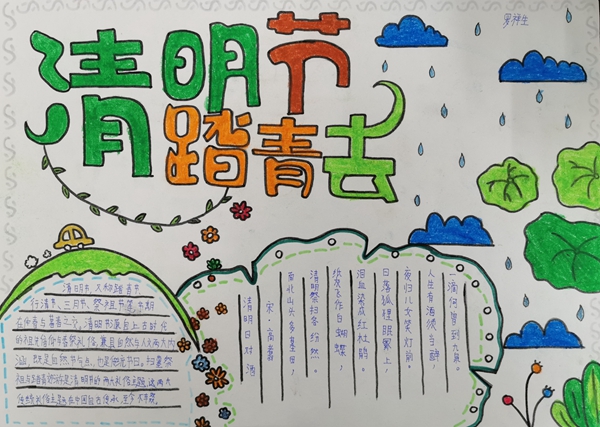 清明节
踏青去
清明节,又称踏青节、
行清节、三月节、祭祖节等,节期
在仲春与暮春之交。清明节源自上古时代
的祖先信仰与春祭礼俗,兼具自然与人文两大内
涵,既是自然节气点,也是传统节日。扫墓祭
祖与踏青郊游是清明节的两大礼俗主题,这两大
传统礼俗主题在中国自古传承,至今不辍。
清明日对酒
宋·高翥
南北山头多墓田,
清明祭扫各纷然。
纸灰飞作白蝴蝶,
泪血染成红杜鹃。
日落狐狸眠冢上,
夜归儿女笑灯前。
人生有酒须当醉,
一滴何曾到九泉。